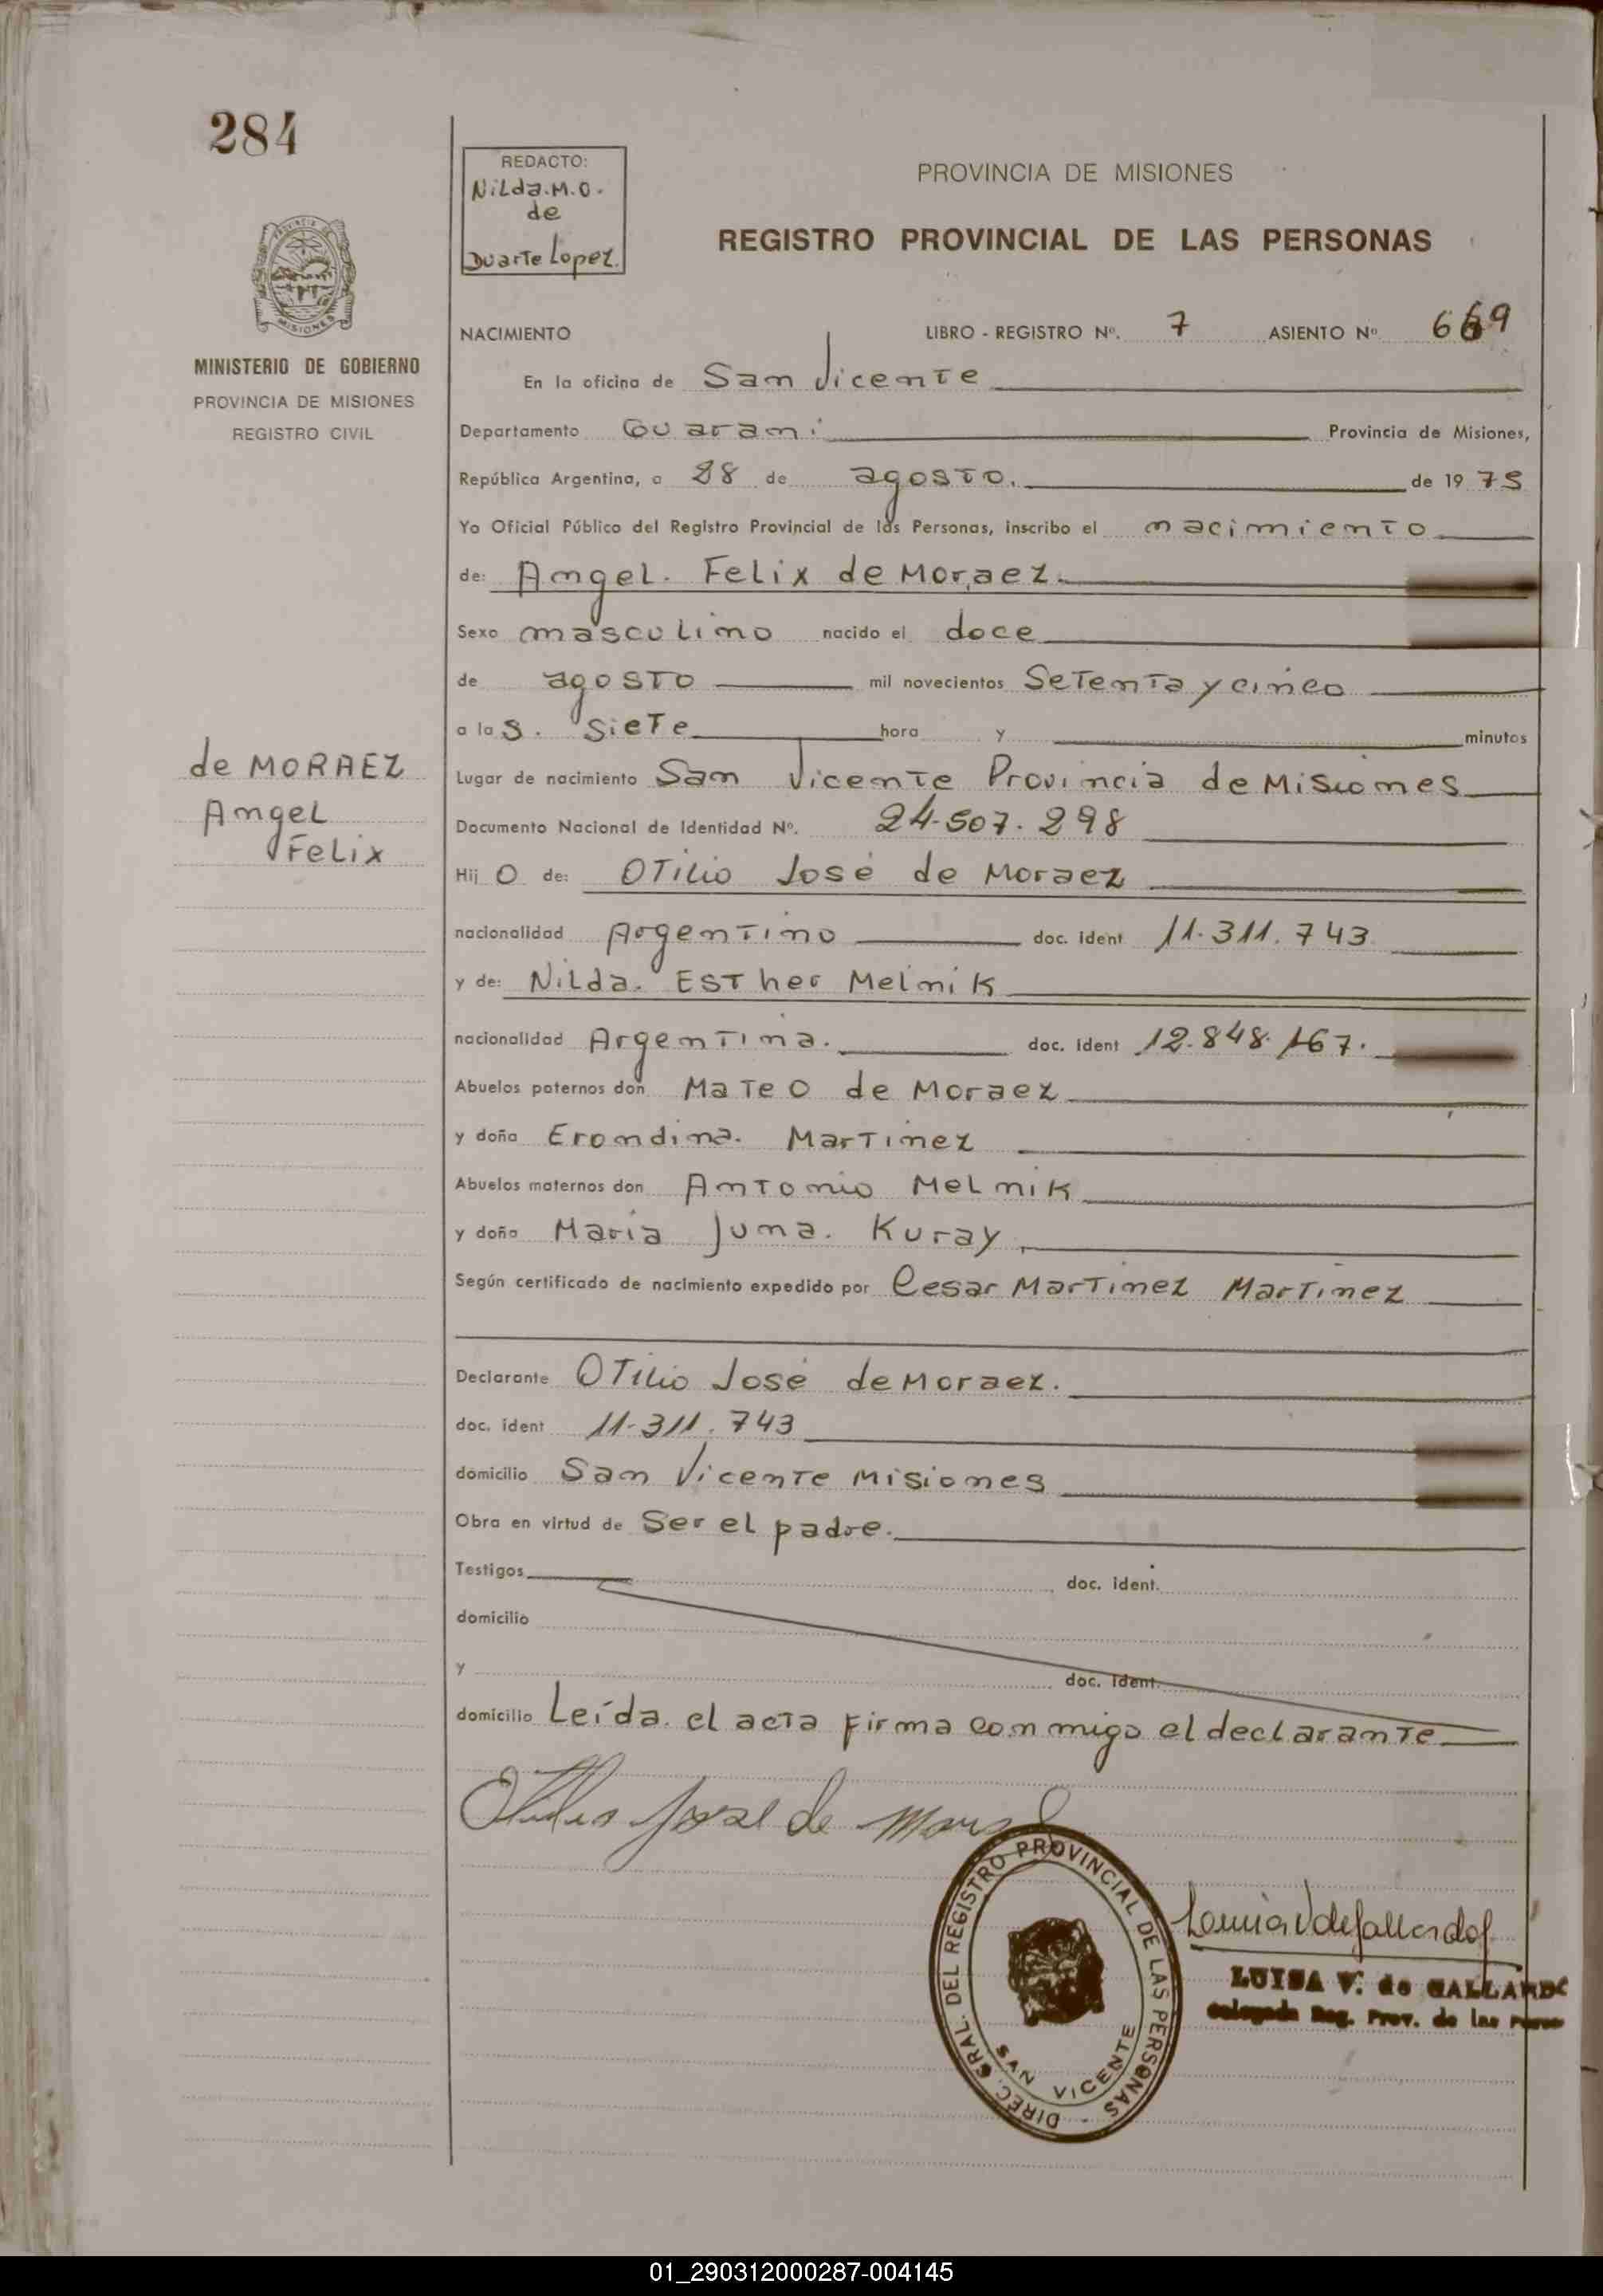 284
REDACTO:
Nilda.M.O.
de
Duarte Lopez.
PROVINCIA DE MISIONES
REGISTRO PROVINCIAL DE LAS PERSONAS
MISIONES
MINISTERIO DE GOBIERNO
PROVINCIA DE MISIONES
REGISTRO CIVIL
NACIMIENTO LIBRO - REGISTRO Nº. 7 ASIENTO Nº 669
En la oficina de San Vicente
Departamento Guarani Provincia de Misiones,
República Argentina, a 28 de agosto. de 1975
Yo Oficial Público del Registro Provincial de las Personas, inscribo el nacimiento
de: Angel. Felix de Moraez.
Sexo masculino nacido el doce
de agosto mil novecientos Setenta y cinco
a las. siete hora y minutos
de MORAEZ
Angel
Felix
Lugar de nacimiento San Vicente Provincia de Misiones
Documento Nacional de Identidad Nº. 24.507.298
Hijo de: Otilio José de Moraez
nacionalidad Argentino doc. ident 11.311.743
y de: Nilda. Esther Melnik
nacionalidad Argentina. doc. ident 12.848.167.
Abuelos paternos don Mateo de Moraez
y doña Erondina. Martinez
Abuelos maternos don Antonio Melnik
y doña Maria Juna. Kuray
Según certificado de nacimiento expedido por Cesar Martinez Martinez
Declarante Otilio José de Moraez.
doc. ident 11.311.743
domicilio San Vicente Misiones
Obra en virtud de Ser el padre.
Testigos doc. ident.
domicilio
y doc. ident.
domicilio Leída. el acta firma conmigo el declarante
Otilio José de
DIREC. GRAL. DEL REGISTRO PROVINCIAL DE LAS PERSONAS
SAN VICENTE
LUISA V. de GALLARDO
Delegada Reg. Prov. de las Perso
01_290312000287-004145